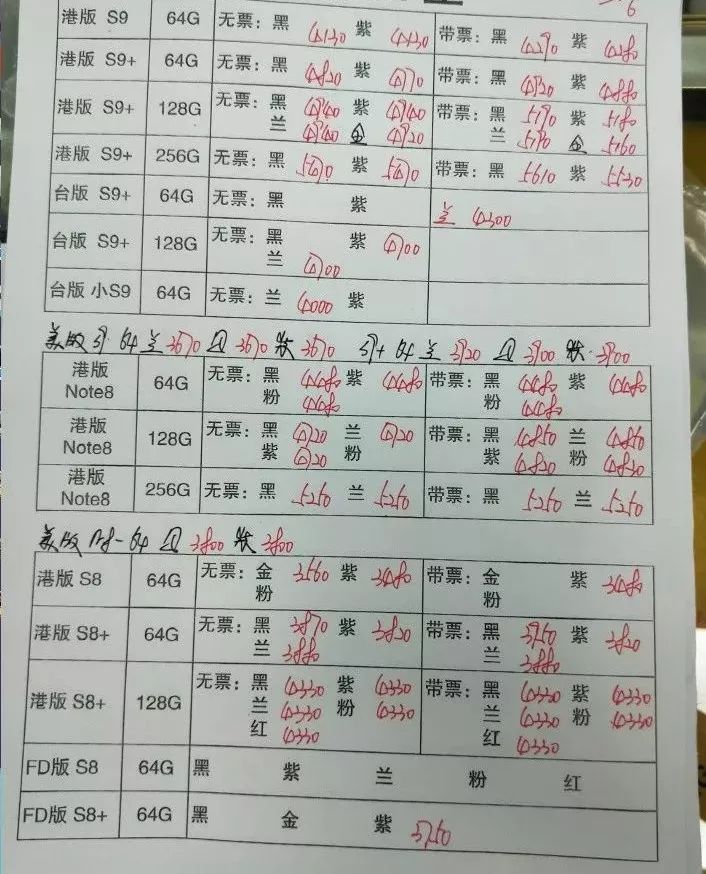 6
港版 S9 64G 无票：黑 4130 紫 4130 带票：黑 4270 紫 4280
港版 S9+ 64G 无票：黑 4820 紫 4770 带票：黑 4920 紫 4880
港版 S9+ 128G 无票：黑 4940 紫 4940 带票：黑 5190 紫 5180
兰 4940 金 4920 兰 5190 金 5160
港版 S9+ 256G 无票：黑 紫 带票：黑 5610 紫 5530
台版 S9+ 64G 无票：黑 紫 兰 4300
台版 S9+ 128G 无票：黑 紫 4700
兰 4700
台版 小S9 64G 无票：兰 4000 紫
美版 S9 64 兰 3570 灰 3570 紫 3570 S9+ 64 兰 3920 灰 3900 紫 3900
港版 Note8 64G 无票：黑 4480 紫 4480 带票：黑 4480 紫 4480
粉 4480 粉 4480
港版 Note8 128G 无票：黑 4720 兰 4720 带票：黑 4860 兰 4860
紫 4720 粉 紫 4820 粉 4830
港版 Note8 256G 无票：黑 5250 兰 5250 带票：黑 5250 兰 5250
美版 64 灰 3800 紫 3800
港版 S8 64G 无票：金 3560 紫 3480 带票：金 紫 3480
粉 粉
港版 S8+ 64G 无票：黑 3870 紫 3820 带票：黑 紫 3820
兰 3880 兰 3880
港版 S8+ 128G 无票：黑 4330 紫 4330 带票：黑 4330 紫 4330
兰 4330 粉 4330 兰 4330 粉 4330
红 4330 红 4330
FD版 S8 64G 黑 紫 兰 粉 红
FD版 S8+ 64G 黑 金 紫